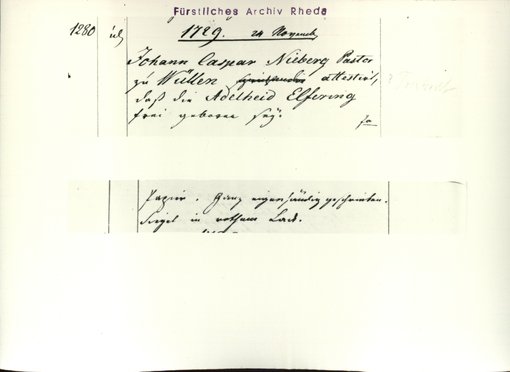 Fürstliches Archiv Rheda
1280
1729. 24 Novemb.
Johann Caspar Nieberg Pastor
zu Wüllen attestirt,
daß die Adelheid Elfering
frei geboren sey.
Papier. Ganz eigenhändig geschrieben.
Siegel in rothem Lack.